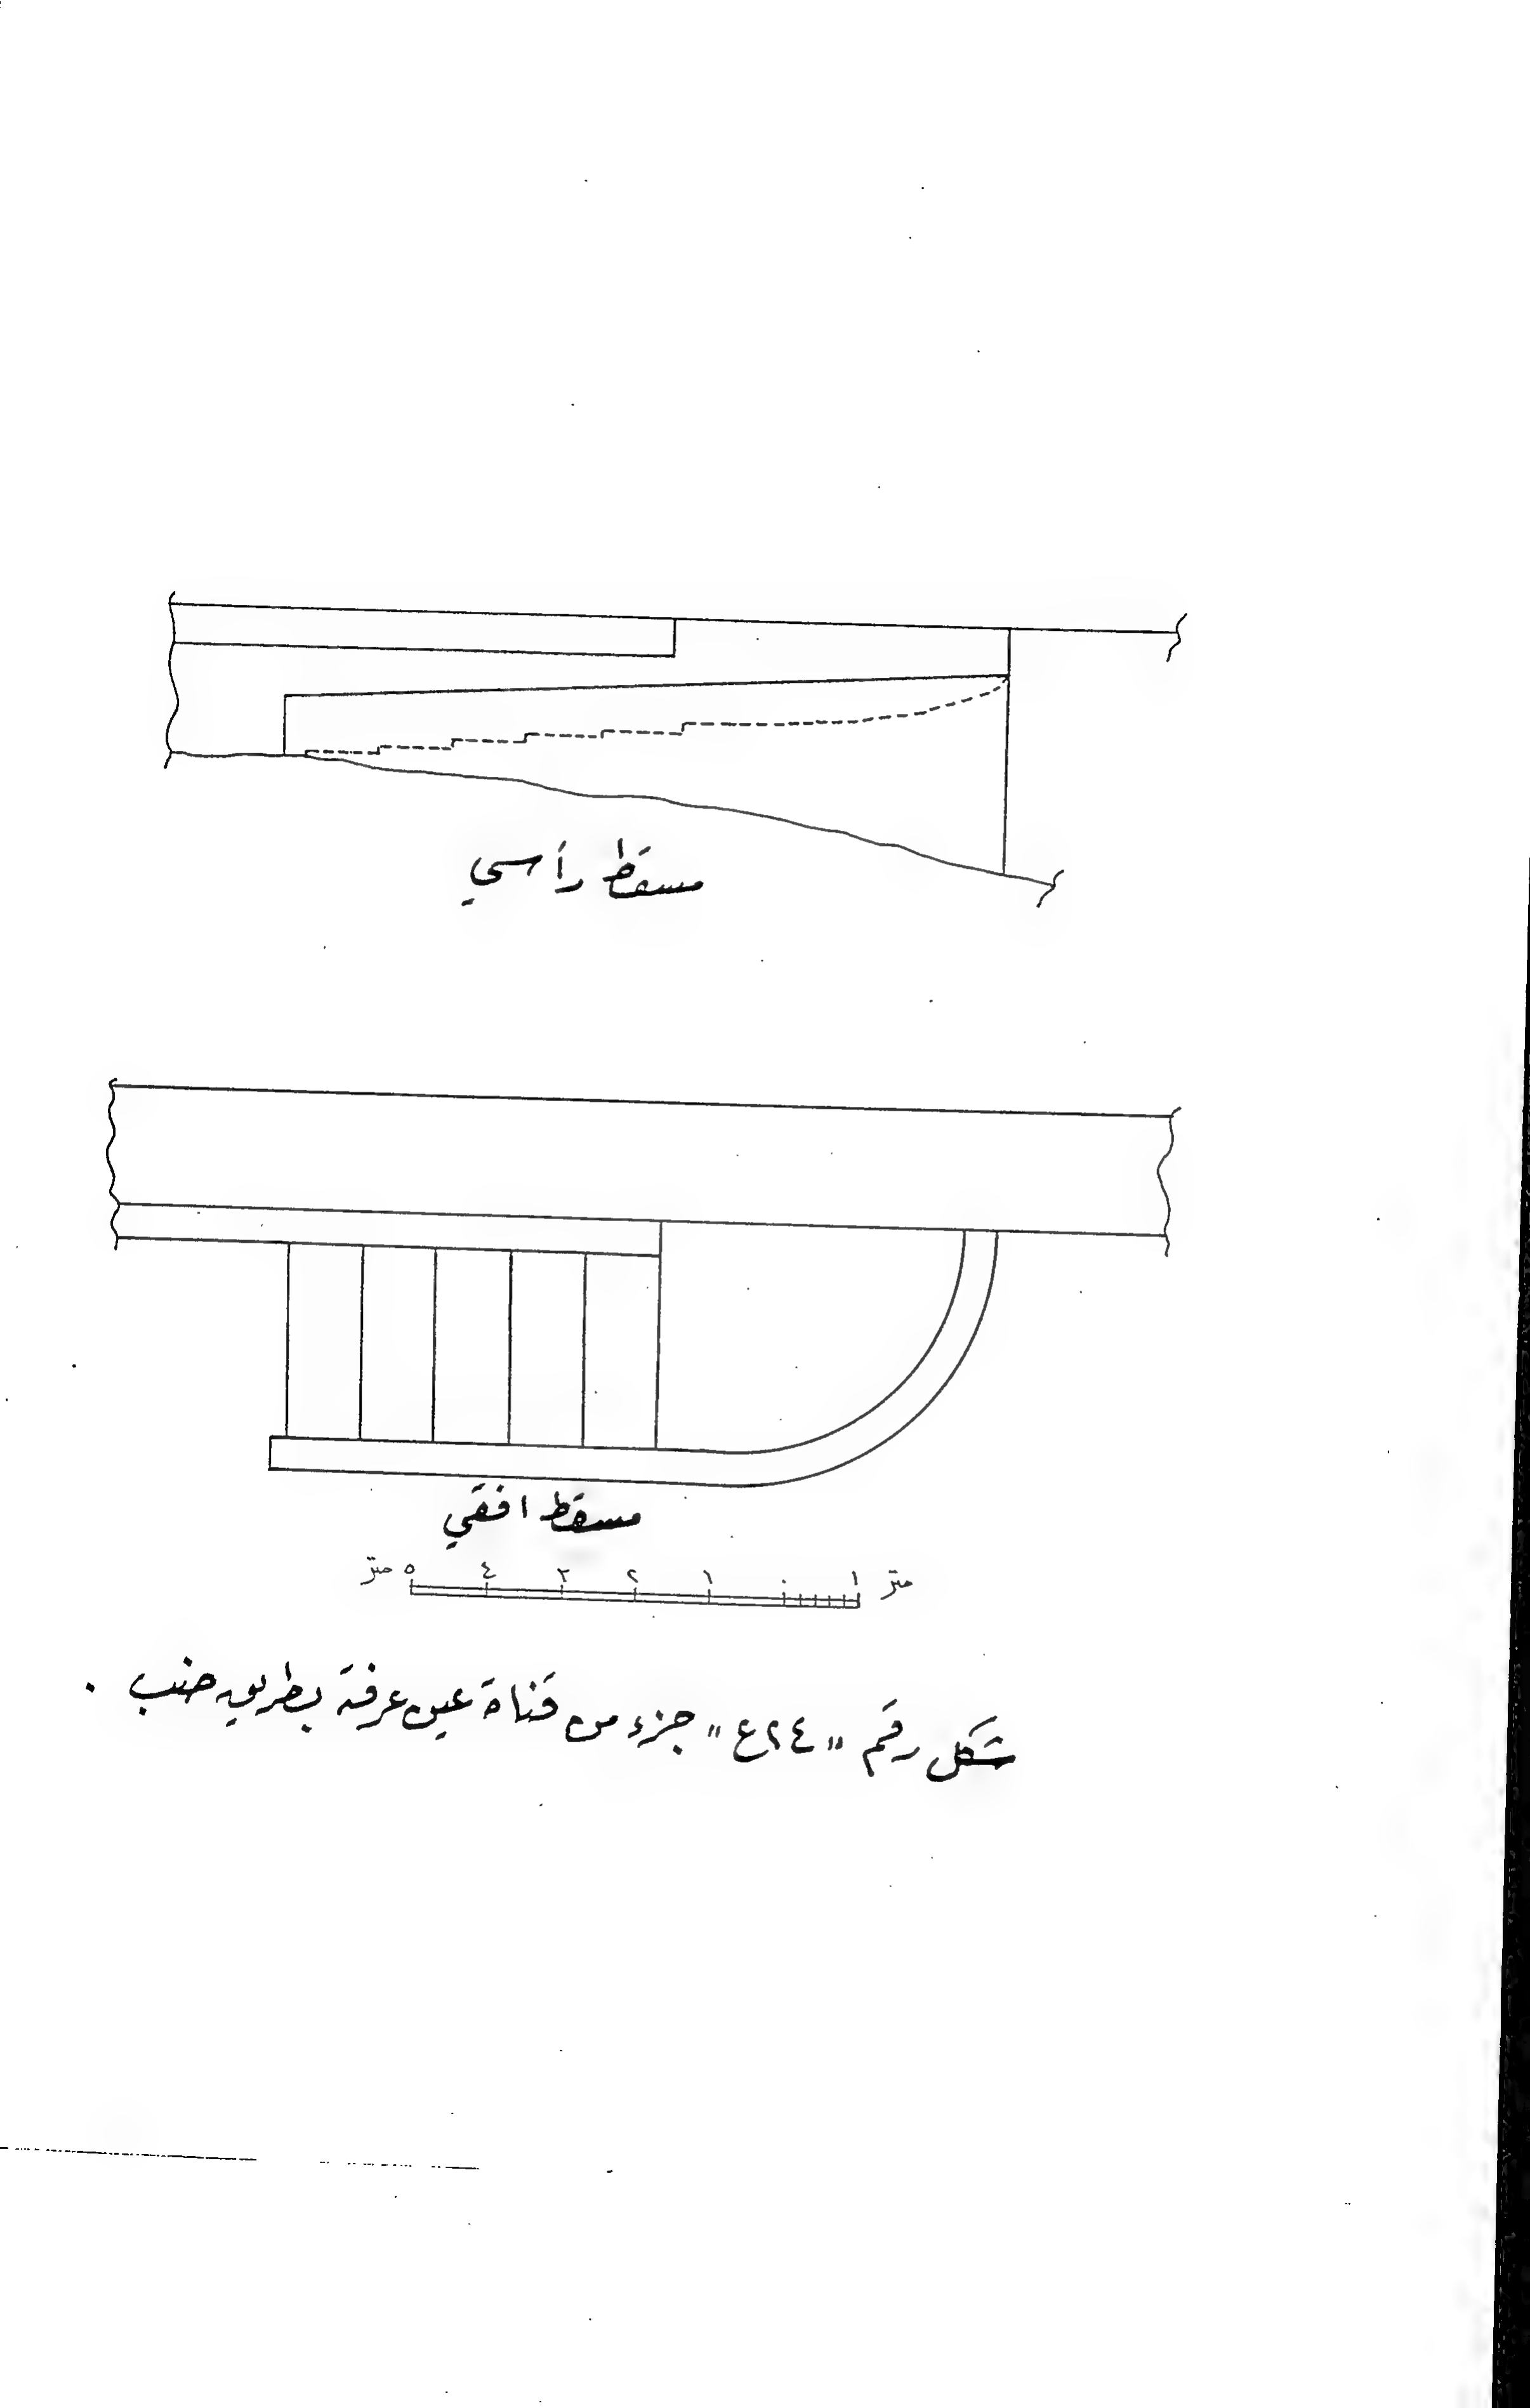 مسقط رأسي
مسقط افقي
متر ٥ ٤ ٣ ٢ ١ ٠ ١ متر
شكل رقم "٢٤ع" جزء من قناة عين عرفة بطريق ضب .